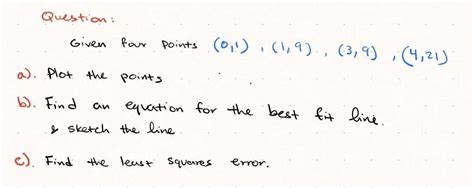 Question:
Given four points (0,1) , (1,9) , (3,9) , (4,21)
a). Plot the points
b). Find an equation for the best fit line.
& sketch the line.
c). Find the least squares error.